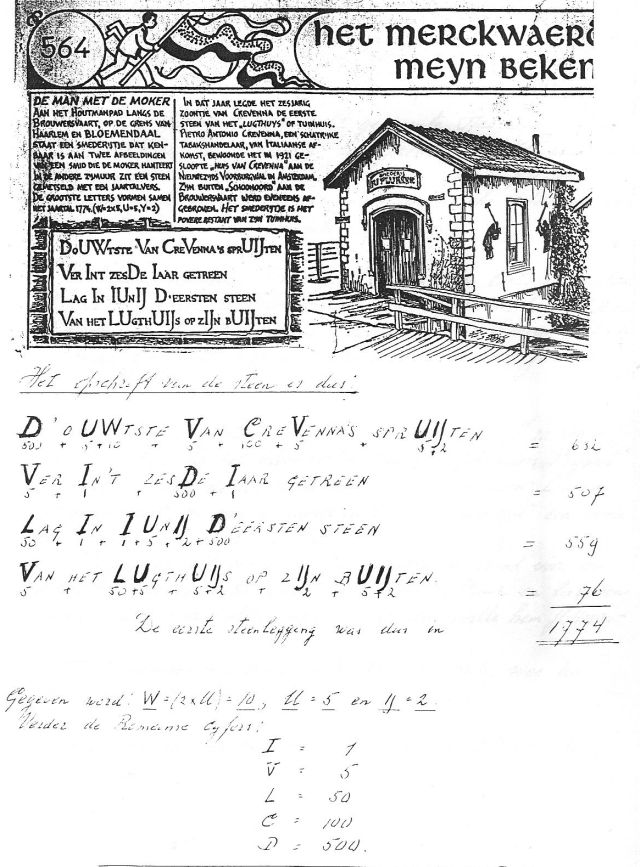 564
het merckwaerd
meyn beken
DE MAN MET DE MOKER
AAN HET HOUTMANPAD LANGS DE
BROUWERSVAART, OP DE GRENS VAN
HAARLEM EN BLOEMENDAAL
STAAT EEN SMEDERIJTJE DAT KEN-
BAAR IS AAN TWEE AFBEELDINGEN
VAN EEN SMID DIE DE MOKER HANTEERT
IN DE ANDERE ZYMUUR ZIT EEN STEEN
GEMETSELD MET EEN JAARTALVERS.
DE GROOTSTE LETTERS VORMEN SAMEN
HET JAARTAL 1774. (W=2x5, U=5, Y=2)
IN DAT JAAR LEGDE HET ZESJARIG
ZOONTJE VAN CREVENNA DE EERSTE
STEEN VAN HET „LUGTHUYS" OF TUINHUIS.
PIETRO ANTONIO CREVENNA, EEN SCHATRIJKE
TABAKSHANDELAAR, VAN ITALIAANSE AF-
KOMST, BEWOONDE HET IN 1921 GE-
SLOOPTE „HUIS VAN CREVENNA" AAN DE
NIEUWEZYDS VOORBURGWAL IN AMSTERDAM.
ZYN BUITEN „SCHOONOORD" AAN DE
BROUWERSVAART WERD EVENEENS AF-
GEBROKEN. HET SMEDERIJTJE IS HET
POVERE RESTANT VAN ZYN TUINHUIS.
DoUWTSTE VAN CREVENNA'S SPRUIJTEN
VER INT ZESDE IAAR GETREEN
LAG IN IUNIJ D'EERSTEN STEEN
VAN HET LUGTHUIJS OP ZIJN BUIJTEN
Het opschrift van de steen is dus:
D'OUWTSTE VAN CREVENNA'S SPRUIJTEN = 632
500 + 5+10 + 5 + 100 + 5 + 5+2
VER IN'T ZESDE IAAR GETREEN = 507
5 + 1 + 500 + 1
LAG IN IUNIJ D'EERSTEN STEEN = 559
50 + 1 + 1+5 + 2+500
VAN HET LUGTHUIJS OP ZIJN BUIJTEN. = 76
5 + 50+5 + 5+2 + 2 + 5+2
De eerste steenlegging was dus in 1774
Gegeven werd: W=(2xU)=10, U=5 en IJ=2.
Verder de Romeinse cyfers:
I = 1
V = 5
L = 50
C = 100
D = 500.